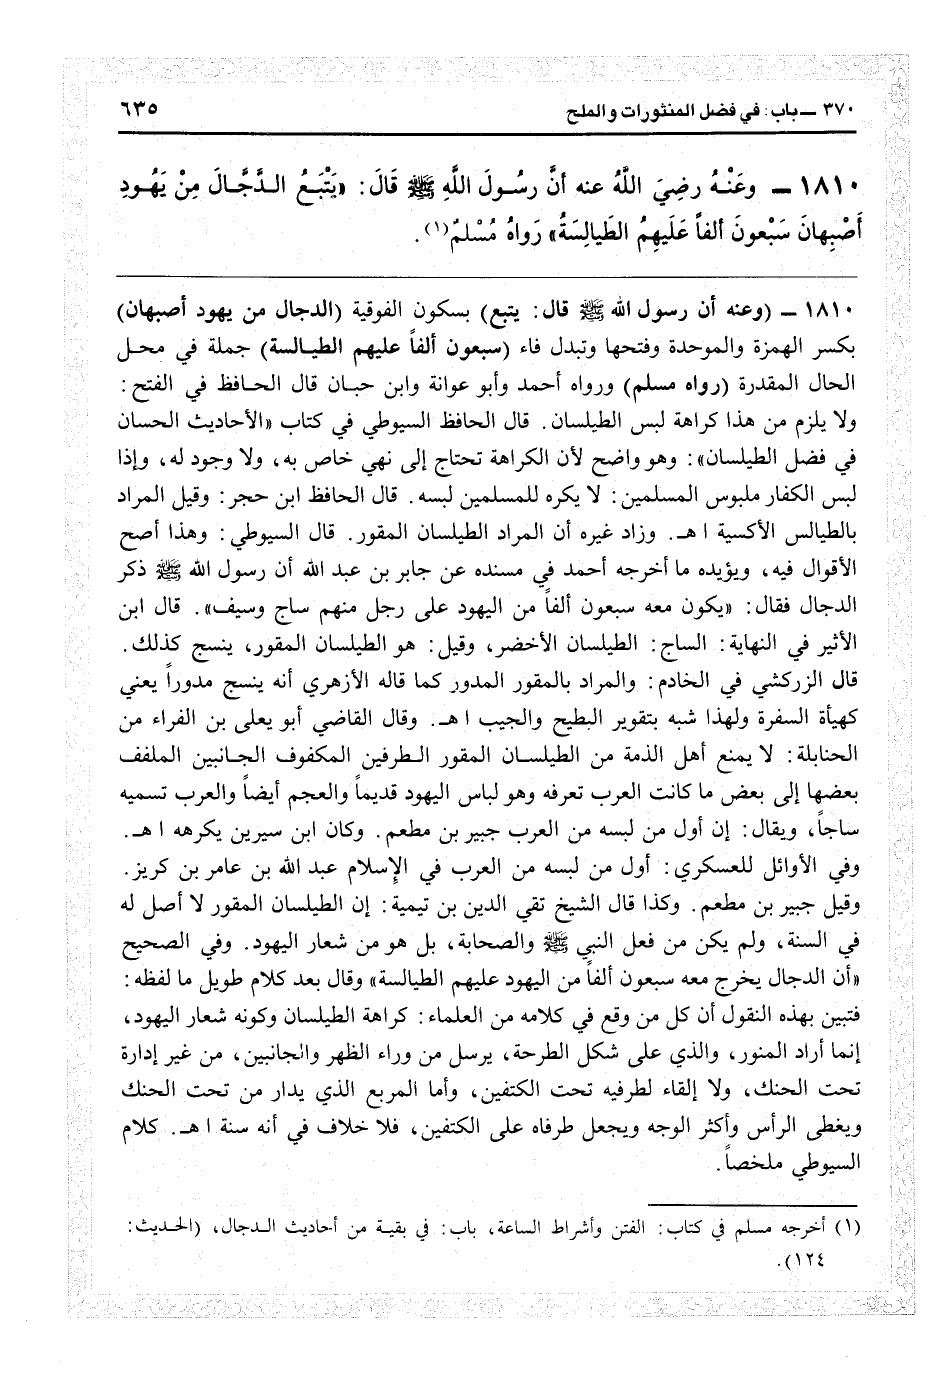 ٣٧٠ ــ باب: في فضل المنثورات والملح ٦٣٥
١٨١٠ ــ وعَنْـهُ رضِيَ اللَّهُ عنه أنَّ رسُـولَ اللَّهِ ﷺ قَالَ: «يَتْبَـعُ الـدَّجَّـالَ مِنْ يَهُـودِ
أَصْبِهانَ سَبْعونَ ألفاً عَلَيهِمُ الطَيالِسَةُ» رَواهُ مُسْلمٌ(١).
١٨١٠ ــ (وعنه أن رسول الله ﷺ قال: يتبع) بسكون الفوقية (الدجال من يهود أصبهان)
بكسر الهمزة والموحدة وفتحها وتبدل فاء (سبعون ألفاً عليهم الطيـالسة) جملة في محـل
الحال المقدرة (رواه مسلم) ورواه أحمد وأبو عوانة وابن حبـان قال الحـافظ في الفتح:
ولا يلزم من هذا كراهة لبس الطيلسان. قال الحافظ السيوطي في كتاب «الأحاديث الحسان
في فضل الطيلسان»: وهو واضح لأن الكراهة تحتاج إلى نهي خاص به، ولا وجود له، وإذا
لبس الكفار ملبوس المسلمين: لا يكره للمسلمين لبسه. قال الحافظ ابن حجر: وقيل المراد
بالطيالس الأكسية ا هـ. وزاد غيره أن المراد الطيلسان المقور. قال السيوطي: وهذا أصح
الأقوال فيه، ويؤيده ما أخرجه أحمد في مسنده عن جابر بن عبد الله أن رسول الله ﷺ ذكر
الدجال فقال: «يكون معه سبعون ألفاً من اليهود على رجل منهم ساج وسيف». قال ابن
الأثير في النهاية: الساج: الطيلسان الأخضر، وقيل: هو الطيلسان المقور، ينسج كذلك.
قال الزركشي في الخادم: والمراد بالمقور المدور كما قاله الأزهري أنه ينسج مدوراً يعني
كهيأة السفرة ولهذا شبه بتقوير البطيح والجيب ا هـ. وقال القاضي أبو يعلى بن الفراء من
الحنابلة: لا يمنع أهل الذمة من الطيلسـان المقور الـطرفين المكفوف الجـانبين الملفف
بعضها إلى بعض ما كانت العرب تعرفه وهو لباس اليهود قديماً والعجم أيضاً والعرب تسميه
ساجاً، ويقال: إن أول من لبسه من العرب جبير بن مطعم. وكان ابن سيرين يكرهه ا هـ.
وفي الأوائل للعسكري: أول من لبسه من العرب في الإسلام عبد الله بن عامر بن كريز.
وقيل جبير بن مطعم. وكذا قال الشيخ تقي الدين بن تيمية: إن الطيلسان المقور لا أصل له
في السنة، ولم يكن من فعل النبي ﷺ والصحابة، بل هو من شعار اليهود. وفي الصحيح
«أن الدجال يخرج معه سبعون ألفاً من اليهود عليهم الطيالسة» وقال بعد كلام طويل ما لفظه:
فتبين بهذه النقول أن كل من وقع في كلامه من العلماء: كراهة الطيلسان وكونه شعار اليهود،
إنما أراد المنور، والذي على شكل الطرحة، يرسل من وراء الظهر والجانبين، من غير إدارة
تحت الحنك، ولا إلقاء لطرفيه تحت الكتفين، وأما المربع الذي يدار من تحت الحنك
ويغطى الرأس وأكثر الوجه ويجعل طرفاه على الكتفين، فلا خلاف في أنه سنة ا هـ. كلام
السيوطي ملخصاً.
(١) أخرجه مسلم في كتاب: الفتن وأشراط الساعة، باب: في بقية من أحاديث الـدجال، (الحـديث:
١٢٤).